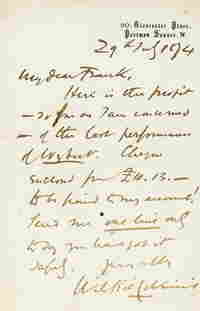 90, Gloucester Place,
Portman Square. W.
29th July 1874
My dear Frank,
Here is the profit
— so far as I am concerned
— of the last performance
of Cheque
enclosed for £10.13.—
to be paid to my account.
Send me one line only
to say you have got it
safely. Yours affly
Wilkie Collins